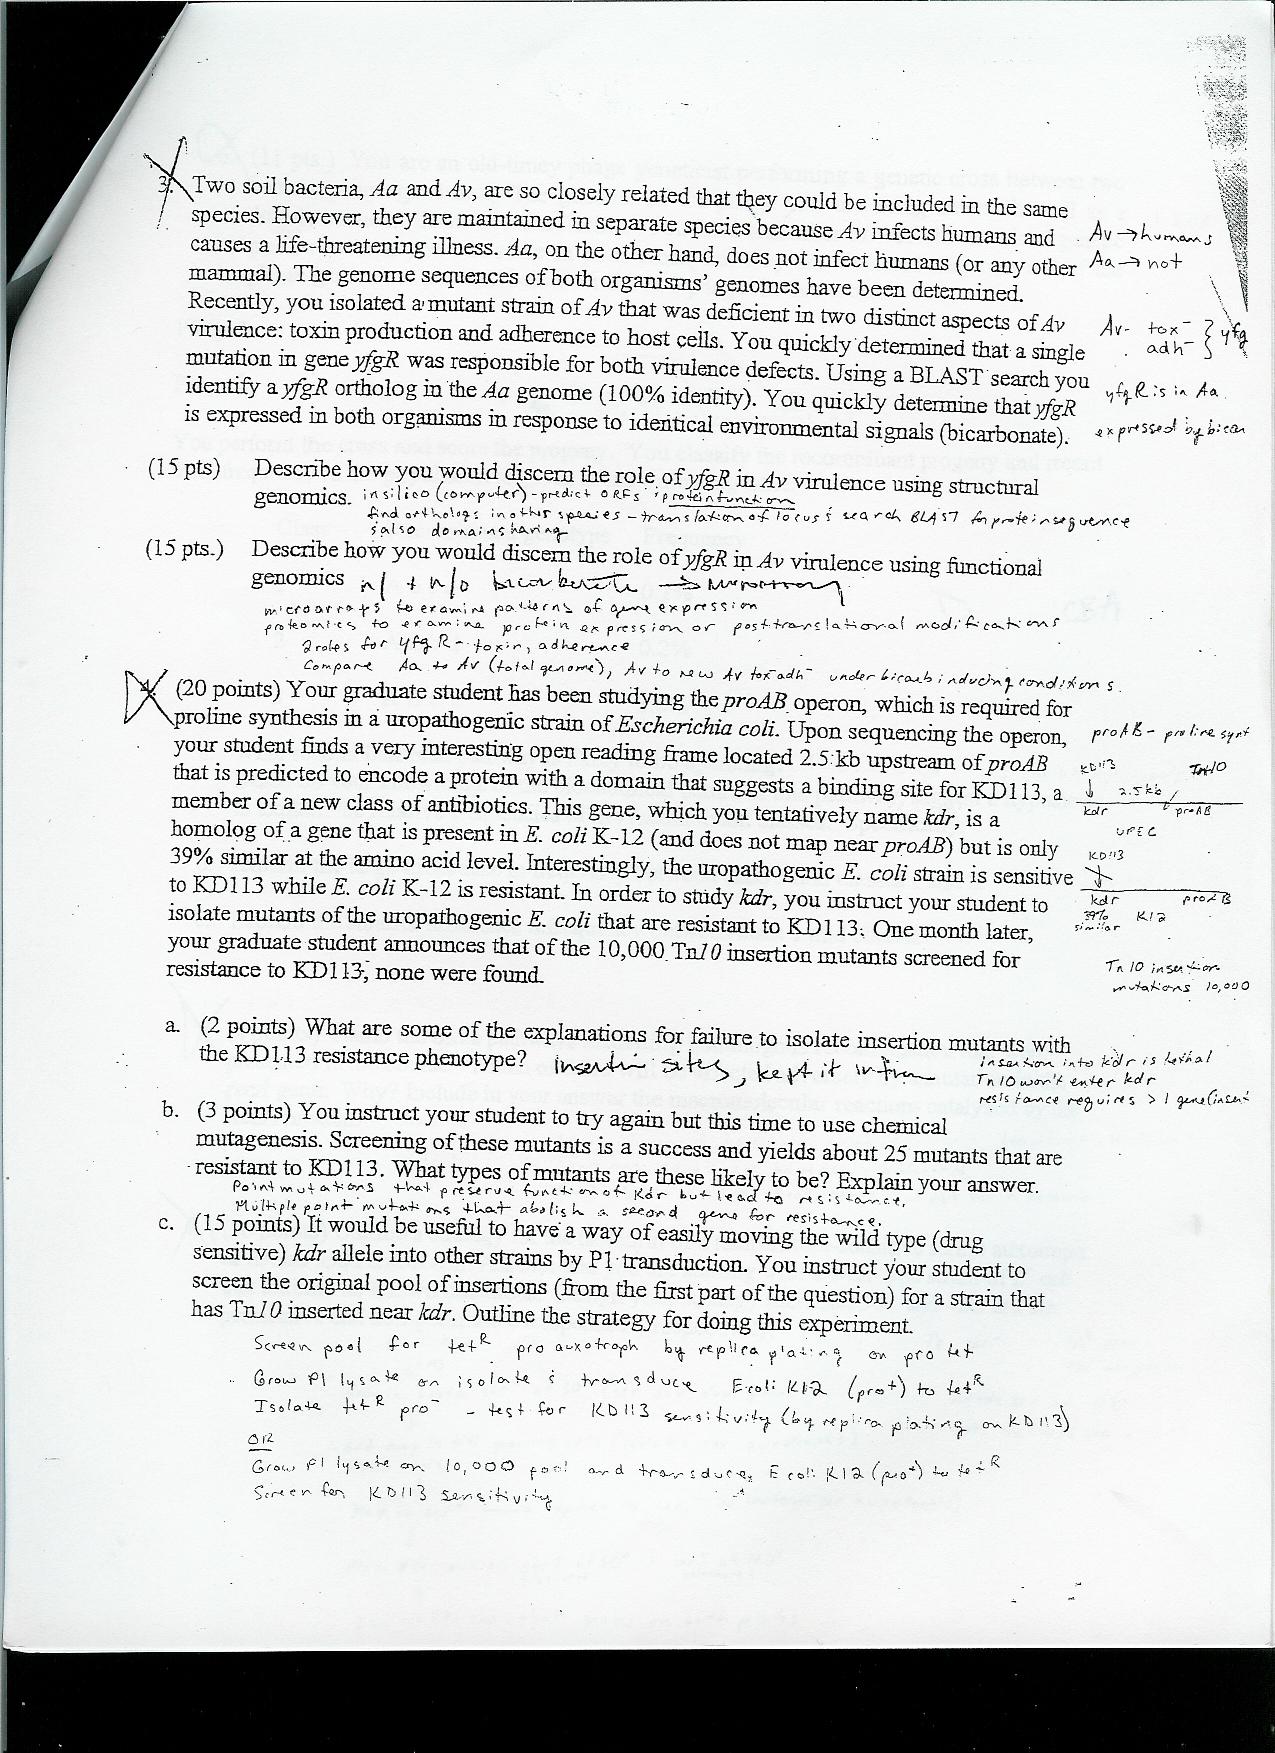 3. Two soil bacteria, Aa and Av, are so closely related that they could be included in the same
species. However, they are maintained in separate species because Av infects humans and
Av → humans
causes a life-threatening illness. Aa, on the other hand, does not infect humans (or any other
Aa → not
mammal). The genome sequences of both organisms' genomes have been determined.
Recently, you isolated a mutant strain of Av that was deficient in two distinct aspects of Av
Av- tox⁻ } yfg
virulence: toxin production and adherence to host cells. You quickly determined that a single
adh⁻
mutation in gene yfgR was responsible for both virulence defects. Using a BLAST search you
identify a yfgR ortholog in the Aa genome (100% identity). You quickly determine that yfgR
yfgR is in Aa
is expressed in both organisms in response to identical environmental signals (bicarbonate).
expressed by bicar
(15 pts) Describe how you would discern the role of yfgR in Av virulence using structural
genomics. insilico (computer) - predict ORFs & protein function
find orthologs in other species - translation of locus & search BLAST for protein sequence
& also domain sharing
(15 pts.) Describe how you would discern the role of yfgR in Av virulence using functional
genomics w/ + w/o bicarbonate →
microarrays to examine patterns of gene expression
proteomics to examine protein expression or posttranslational modifications
2 roles for yfgR - toxin, adherence
Compare Aa to Av (total genome), Av to new Av tox⁻adh⁻ under bicarb inducing conditions.
4. (20 points) Your graduate student has been studying the proAB operon, which is required for
proline synthesis in a uropathogenic strain of Escherichia coli. Upon sequencing the operon,
proAB - proline synt
your student finds a very interesting open reading frame located 2.5 kb upstream of proAB
KD113 Tn10
that is predicted to encode a protein with a domain that suggests a binding site for KD113, a
↓ 2.5kb
member of a new class of antibiotics. This gene, which you tentatively name kdr, is a
kdr proAB
homolog of a gene that is present in E. coli K-12 (and does not map near proAB) but is only
UPEC
39% similar at the amino acid level. Interestingly, the uropathogenic E. coli strain is sensitive
KD113
to KD113 while E. coli K-12 is resistant. In order to study kdr, you instruct your student to
kdr proAB
isolate mutants of the uropathogenic E. coli that are resistant to KD113. One month later,
39% similar K12
your graduate student announces that of the 10,000 Tn10 insertion mutants screened for
resistance to KD113, none were found.
Tn10 insertion
mutations 10,000
a. (2 points) What are some of the explanations for failure to isolate insertion mutants with
the KD113 resistance phenotype? insertion sites, kept it in
insertion into kdr is lethal
Tn10 won't enter kdr
resistance requires > 1 gene (insert
b. (3 points) You instruct your student to try again but this time to use chemical
mutagenesis. Screening of these mutants is a success and yields about 25 mutants that are
resistant to KD113. What types of mutants are these likely to be? Explain your answer.
Point mutations that preserve function of Kdr but lead to resistance.
Multiple point mutations that abolish a second gene for resistance.
c. (15 points) It would be useful to have a way of easily moving the wild type (drug
sensitive) kdr allele into other strains by P1 transduction. You instruct your student to
screen the original pool of insertions (from the first part of the question) for a strain that
has Tn10 inserted near kdr. Outline the strategy for doing this experiment.
Screen pool for tetᴿ pro auxotroph by replica plating on pro tet
Grow P1 lysate on isolate & transduce E coli K12 (pro⁺) to tetᴿ
Isolate tetᴿ pro⁻ - test for KD113 sensitivity (by replica plating on KD113)
OR
Grow P1 lysate on 10,000 pool and transduce E coli K12 (pro⁺) to tetᴿ
Screen for KD113 sensitivity